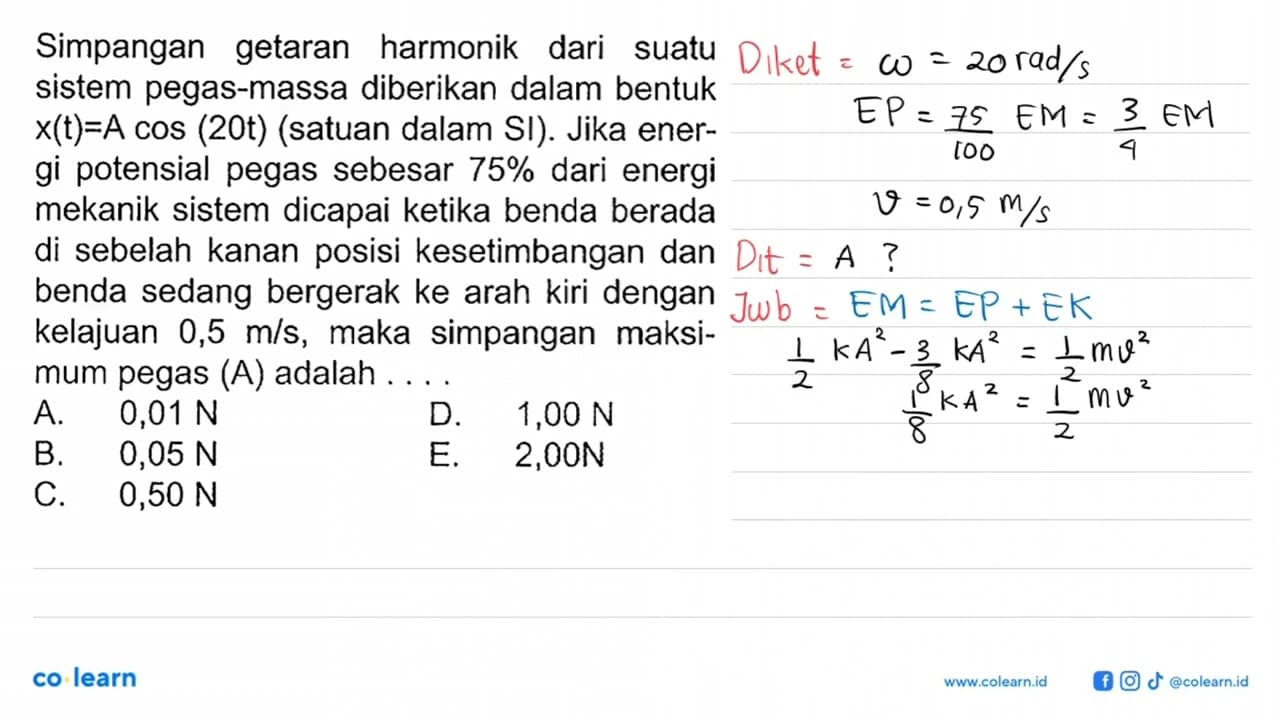 Simpangan getaran harmonik dari suatu
sistem pegas-massa diberikan dalam bentuk
x(t)=A cos (20t) (satuan dalam SI). Jika ener-
gi potensial pegas sebesar 75% dari energi
mekanik sistem dicapai ketika benda berada
di sebelah kanan posisi kesetimbangan dan
benda sedang bergerak ke arah kiri dengan
kelajuan 0,5 m/s, maka simpangan maksi-
mum pegas (A) adalah . . . .
A. 0,01 N D. 1,00 N
B. 0,05 N E. 2,00N
C. 0,50 N
Diket = ω = 20 rad/s
EP = 75/100 EM = 3/4 EM
v = 0,5 m/s
Dit = A ?
Jwb = EM = EP + EK
1/2 kA² - 3/8 kA² = 1/2 mv²
1/8 kA² = 1/2 mv²
co learn
www.colearn.id
@colearn.id